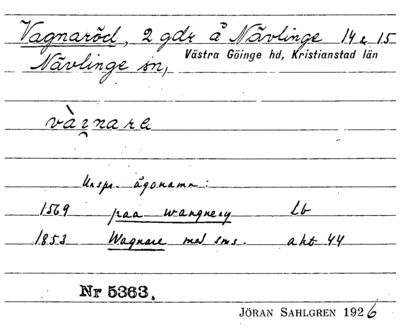 Vagnaröd, 2 gdr å Nävlinge 14 & 15
Nävlinge sn, Västra Göinge hd, Kristianstad län
vàꝛnara
Urspr. ägonamn:
1569 paa wangnery Lb
1853 Wagnare med sms. akt 44
Nr 5363.
JÖRAN SAHLGREN 1926